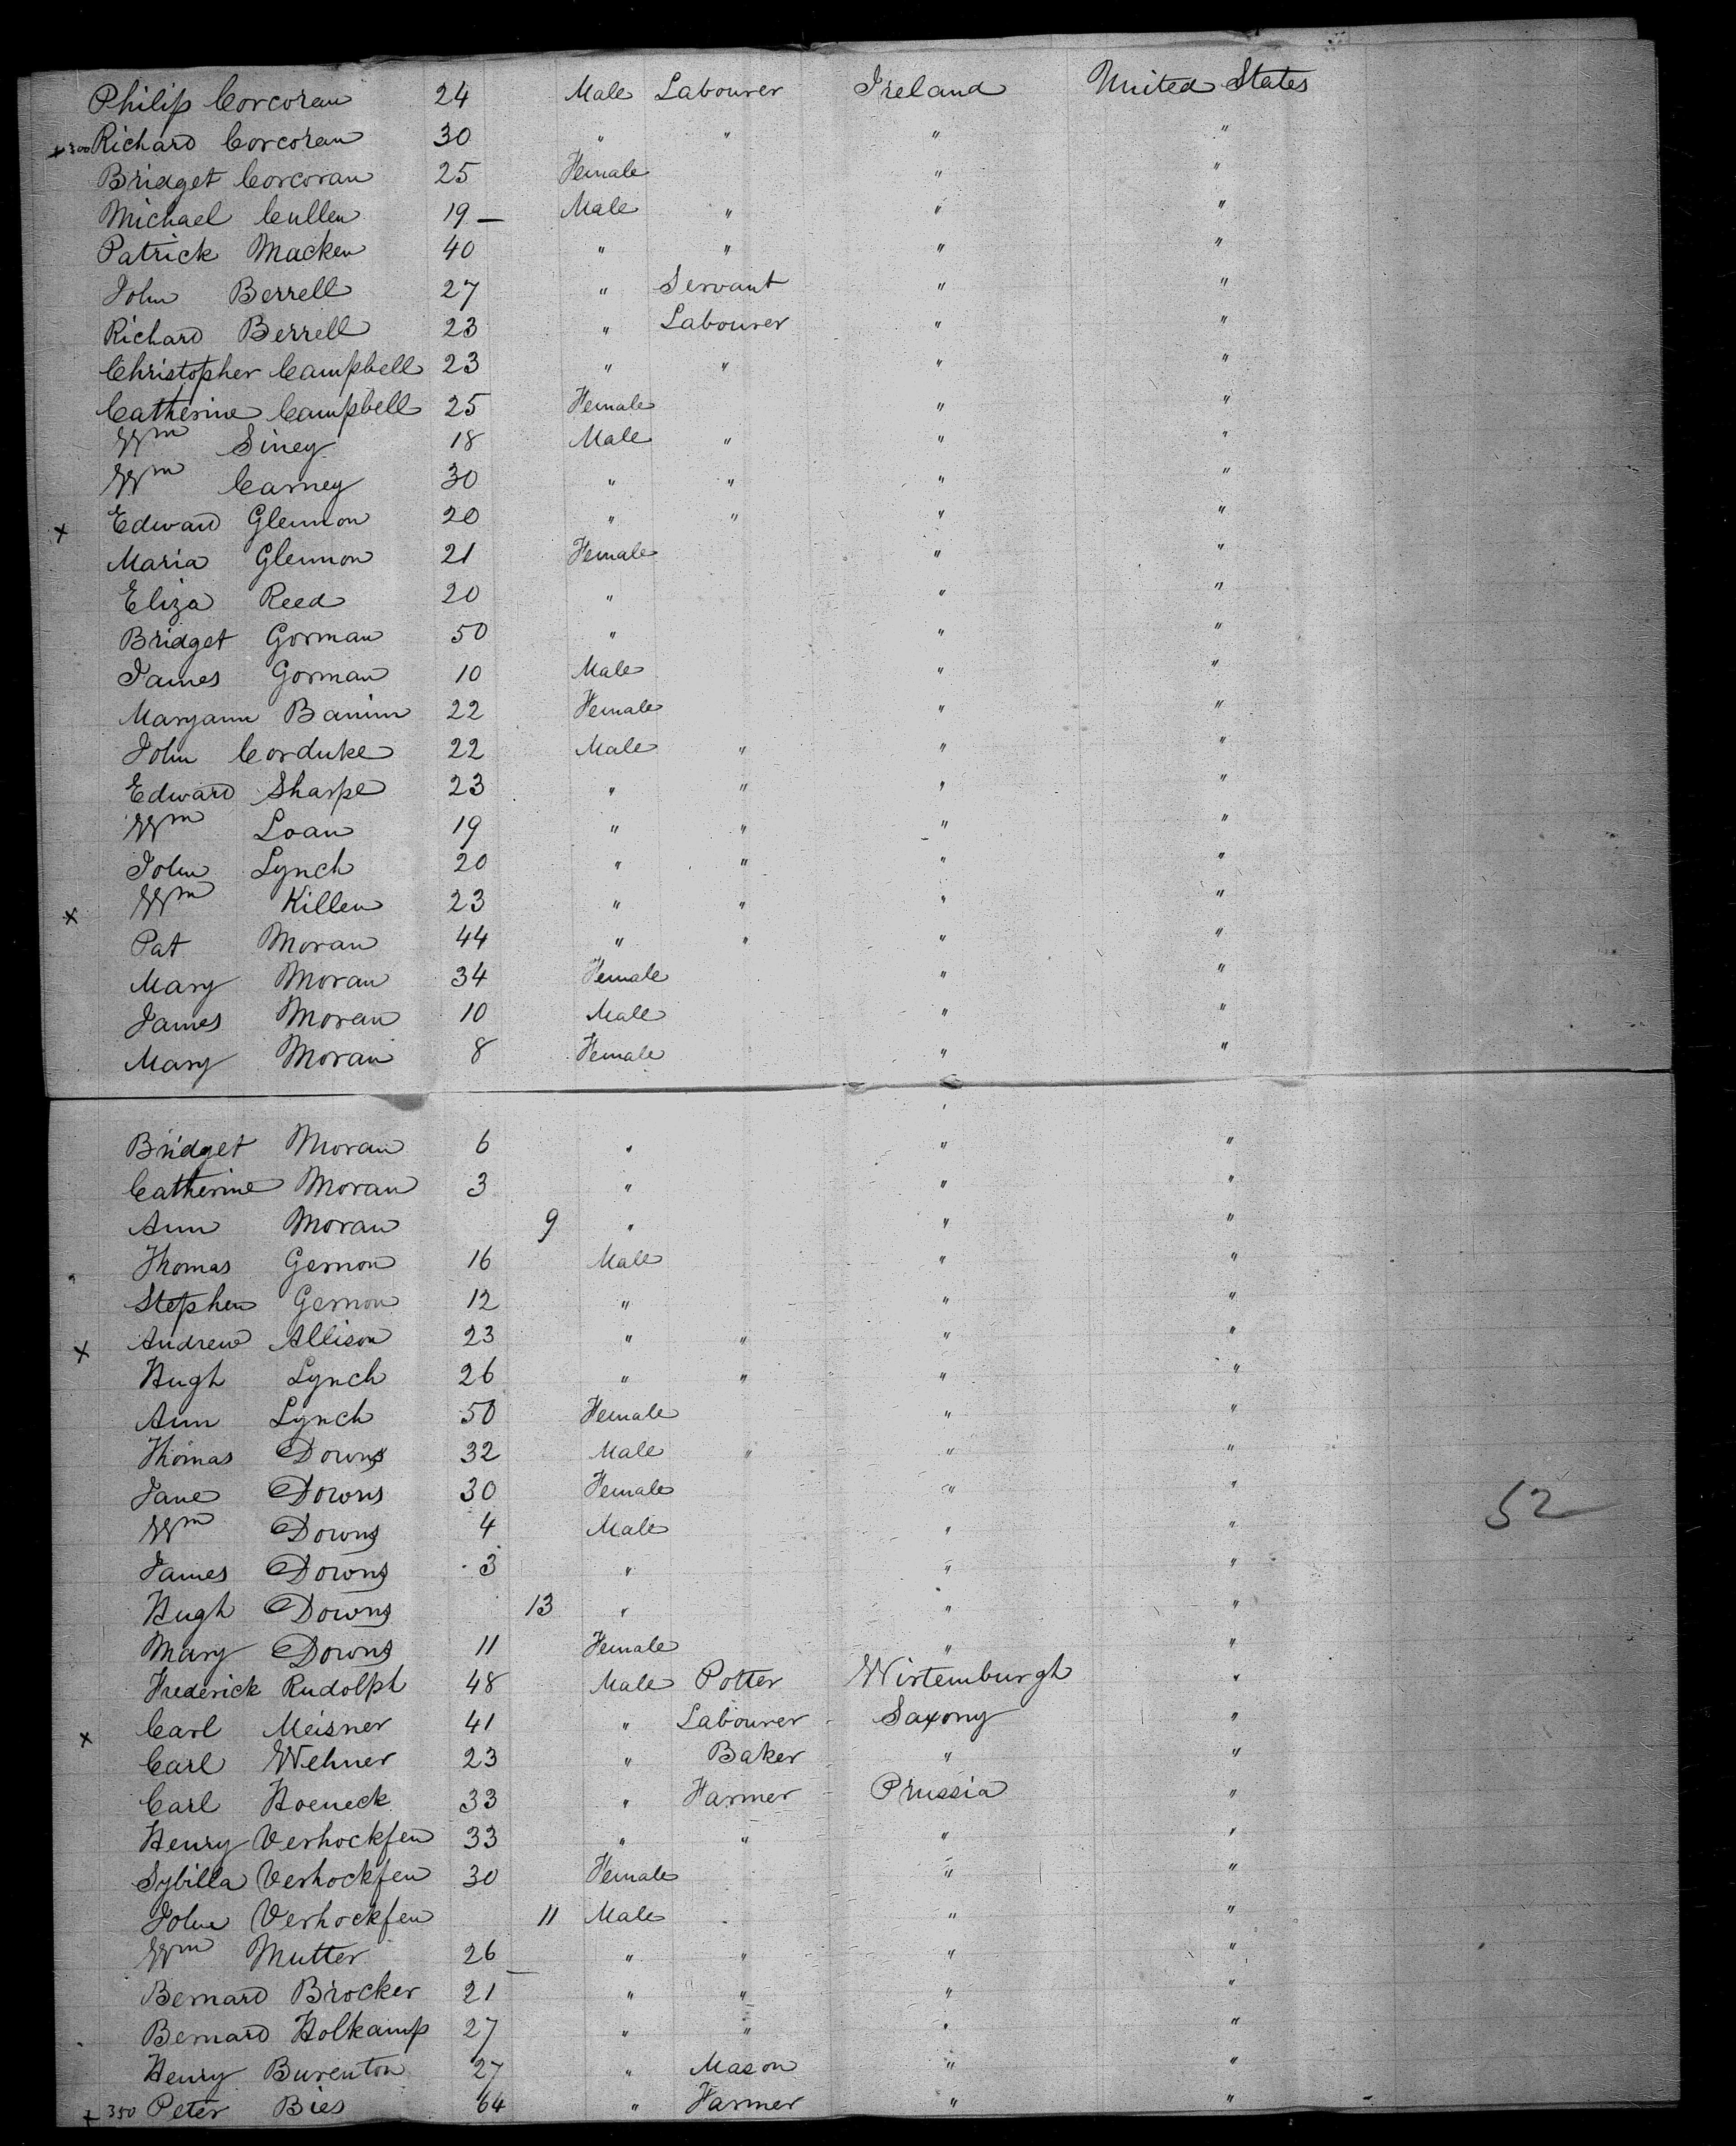 Philip Corcoran 24 Male Labourer Ireland United States
+ 300 Richard Corcoran 30 " " " "
Bridget Corcoran 25 Female " "
Michael Cullen 19 — Male " " "
Patrick Macken 40 " " " "
John Berrell 27 " Servant " "
Richard Berrell 23 " Labourer " "
Christopher Campbell 23 " " " "
Catherine Campbell 25 Female " "
Wm Siney 18 Male " " "
Wm Carney 30 " " " "
x Edward Glennon 20 " " " "
Maria Glennon 21 Female " "
Eliza Reed 20 " " "
Bridget Gorman 50 " " "
James Gorman 10 Male " "
Maryann Bannin 22 Female " "
John Corduke 22 Male " " "
Edward Sharpe 23 " " " "
Wm Loan 19 " " " "
John Lynch 20 " " " "
x Wm Killen 23 " " " "
Pat Moran 44 " " " "
Mary Moran 34 Female " "
James Moran 10 Male " "
Mary Moran 8 Female " "
Bridget Moran 6 " " "
Catherine Moran 3 " " "
Ann Moran 9 " " "
Thomas Gernon 16 Male " "
Stephen Gernon 12 " " "
x Andrew Allison 23 " " " "
Hugh Lynch 26 " " " "
Ann Lynch 50 Female " "
Thomas Downs 32 Male " " "
Jane Downs 30 Female " "
52
Wm Downs 4 Male " "
James Downs 3 " " "
Hugh Downs 13 " " "
Mary Downs 11 Female " "
Frederick Rudolph 48 Male Potter Wirtemburgh "
x Carl Meisner 41 " Labourer Saxony "
Carl Wehner 23 " Baker " "
Carl Hoeneck 33 " Farmer Prussia "
Henry Verhockfen 33 " " " "
Sybilla Verhockfen 30 Female " "
John Verhockfen 11 Male " "
Wm Mutter 26 " " " "
Bernard Brocker 21 " " " "
Bernard Holkamp 27 " " " "
Henry Burenton 27 " Mason " "
+ 350 Peter Bies 64 " Farmer " "